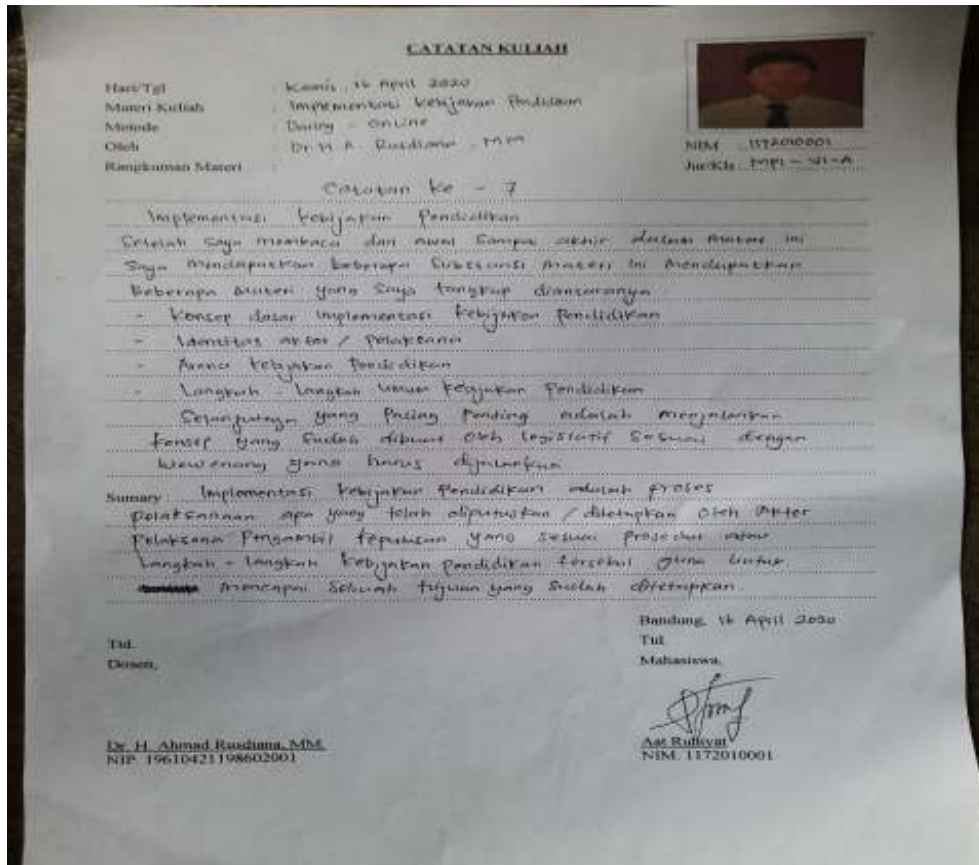 CATATAN KULIAH
Hari/Tgl : Kamis, 16 April 2020
Materi Kuliah : Implementasi Kebijakan Pendidikan
Metode : Daring - Online
Oleh : Dr. H. A. Rusdiana, MM
NIM : 1172010001
Rangkuman Materi :
Jur/Kls : MPI - VI - A
Catatan ke - 7
Implementasi kebijakan Pendidikan
Setelah saya membaca dari awal sampai akhir dalam materi ini
Saya mendapatkan beberapa Substansi materi ini mendapatkan
Beberapa materi yang saya tangkap diantaranya
- Konsep dasar implementasi kebijakan Pendidikan
- Identitas aktor / Pelaksana
- Arena kebijakan Pendidikan
- Langkah - Langkah umum kebijakan Pendidikan
Selanjutnya yang Paling Penting adalah menjalankan
konsep yang sudah dibuat oleh legislatif sesuai dengan
wewenang yang harus dijalankan
Sumary : Implementasi kebijakan Pendidikan adalah proses
pelaksanaan apa yang telah diputuskan / ditetapkan oleh Aktor
Pelaksana Pengambil keputusan yang sesuai prosedur
Langkah - Langkah kebijakan pendidikan tersebut guna untuk
mencapai sebuah tujuan yang sudah ditetapkan.
Bandung, 16 April 2020
Ttd.
Ttd
Dosen,
Mahasiswa,
Dr. H. Ahmad Rusdiana, MM.
NIP. 196104211198602001
Aat Rufisyat
NIM. 1172010001